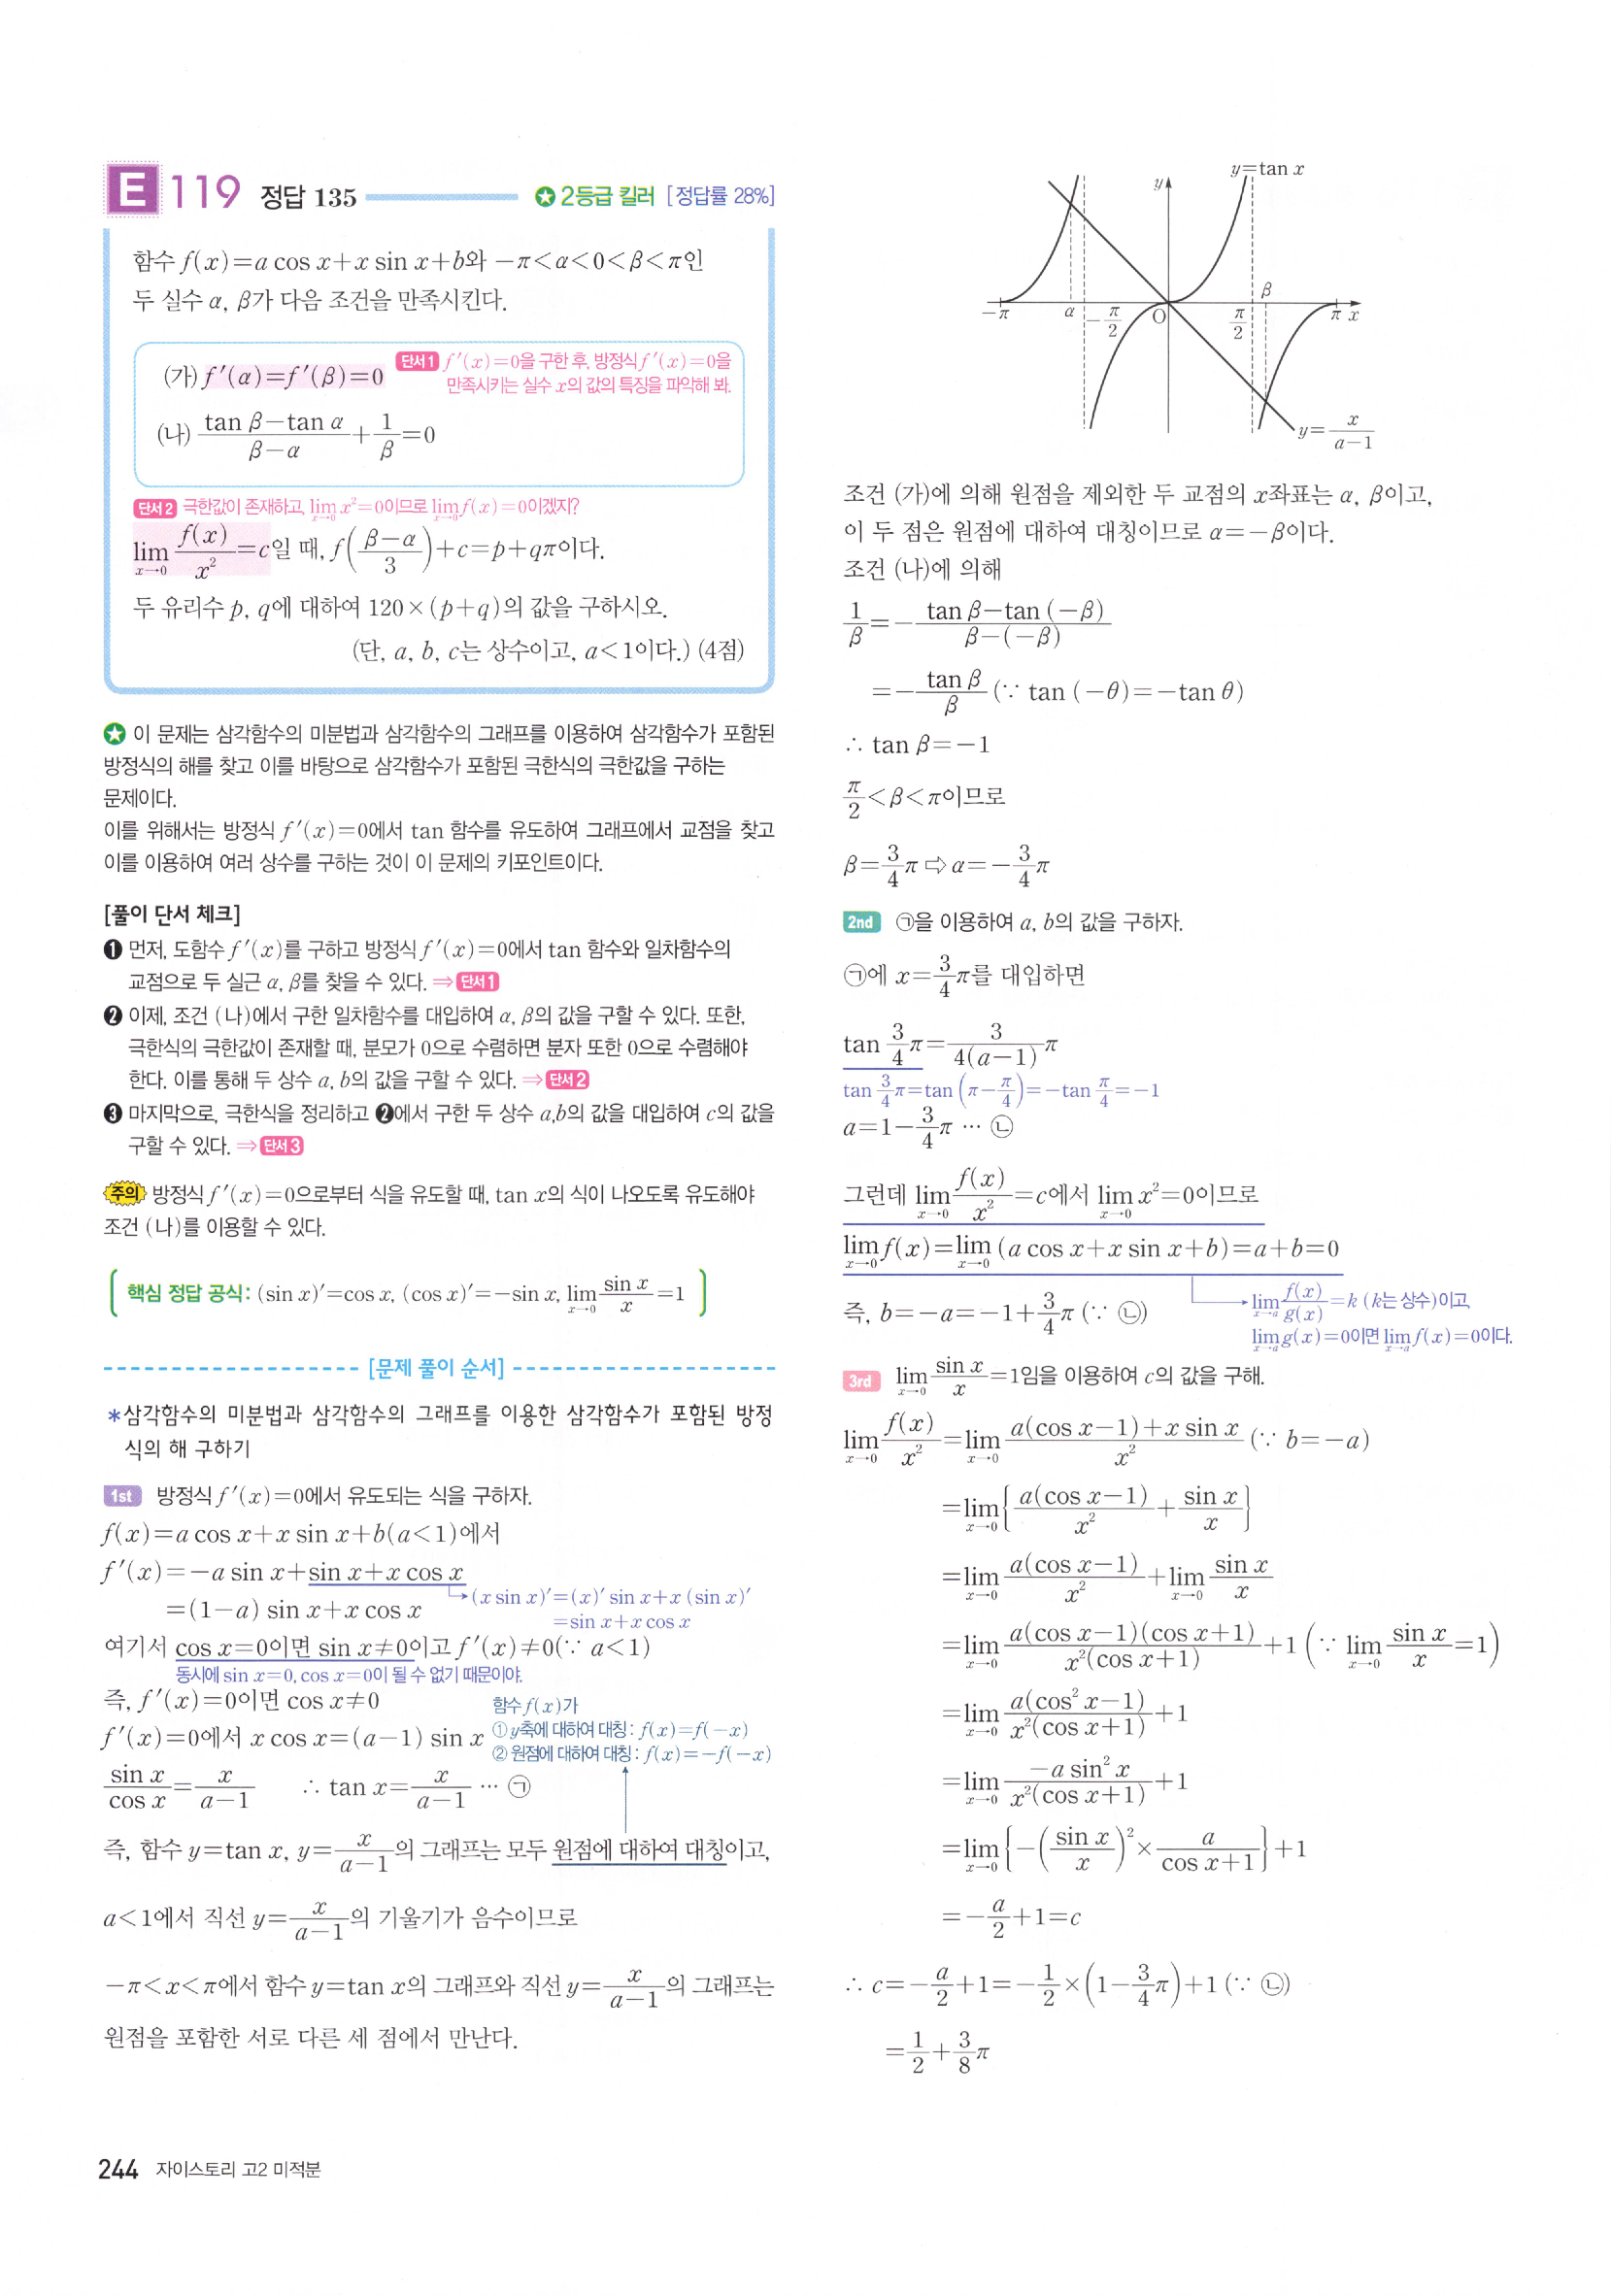 E 119 정답 135 ✪ 2등급 킬러 [정답률 28%]
함수 f(x)=a cos x+x sin x+b와 −π<α<0<β<π인
두 실수 α, β가 다음 조건을 만족시킨다.
(가) f′(α)=f′(β)=0 단서1 f′(x)=0을 구한 후, 방정식 f′(x)=0을
만족시키는 실수 x의 값의 특징을 파악해 봐.
(나) (tan β−tan α)/(β−α)+1/β=0
단서2 극한값이 존재하고, lim_{x→0} x²=0이므로 lim_{x→0} f(x)=0이겠지?
lim_{x→0} f(x)/x²=c일 때, f((β−α)/3)+c=p+qπ이다.
두 유리수 p, q에 대하여 120×(p+q)의 값을 구하시오.
(단, a, b, c는 상수이고, a<1이다.) (4점)
✪ 이 문제는 삼각함수의 미분법과 삼각함수의 그래프를 이용하여 삼각함수가 포함된
방정식의 해를 찾고 이를 바탕으로 삼각함수가 포함된 극한식의 극한값을 구하는
문제이다.
이를 위해서는 방정식 f′(x)=0에서 tan 함수를 유도하여 그래프에서 교점을 찾고
이를 이용하여 여러 상수를 구하는 것이 이 문제의 키포인트이다.
[풀이 단서 체크]
❶ 먼저, 도함수 f′(x)를 구하고 방정식 f′(x)=0에서 tan 함수와 일차함수의
교점으로 두 실근 α, β를 찾을 수 있다. ⇒ 단서1
❷ 이제, 조건 (나)에서 구한 일차함수를 대입하여 α, β의 값을 구할 수 있다. 또한,
극한식의 극한값이 존재할 때, 분모가 0으로 수렴하면 분자 또한 0으로 수렴해야
한다. 이를 통해 두 상수 a, b의 값을 구할 수 있다. ⇒ 단서2
❸ 마지막으로, 극한식을 정리하고 ❷에서 구한 두 상수 a,b의 값을 대입하여 c의 값을
구할 수 있다. ⇒ 단서3
주의 방정식 f′(x)=0으로부터 식을 유도할 때, tan x의 식이 나오도록 유도해야
조건 (나)를 이용할 수 있다.
핵심 정답 공식: (sin x)′=cos x, (cos x)′=−sin x, lim_{x→0} sin x/x=1
[문제 풀이 순서]
*삼각함수의 미분법과 삼각함수의 그래프를 이용한 삼각함수가 포함된 방정
식의 해 구하기
1st 방정식 f′(x)=0에서 유도되는 식을 구하자.
f(x)=a cos x+x sin x+b(a<1)에서
f′(x)=−a sin x+sin x+x cos x
→(x sin x)′=(x)′ sin x+x (sin x)′
=(1−a) sin x+x cos x
=sin x+x cos x
여기서 cos x=0이면 sin x≠0이고 f′(x)≠0(∵ a<1)
동시에 sin x=0, cos x=0이 될 수 없기 때문이야.
즉, f′(x)=0이면 cos x≠0
함수 f(x)가
f′(x)=0에서 x cos x=(a−1) sin x
① y축에 대하여 대칭: f(x)=f(−x)
② 원점에 대하여 대칭: f(x)=−f(−x)
sin x/cos x=x/(a−1) ∴ tan x=x/(a−1) ⋯ ㉠
즉, 함수 y=tan x, y=x/(a−1)의 그래프는 모두 원점에 대하여 대칭이고,
a<1에서 직선 y=x/(a−1)의 기울기가 음수이므로
−π<x<π에서 함수 y=tan x의 그래프와 직선 y=x/(a−1)의 그래프는
원점을 포함한 서로 다른 세 점에서 만난다.
244 자이스토리 고2 미적분
y=tan x
y
β
−π α −π/2 O π/2 π x
y=x/(a−1)
조건 (가)에 의해 원점을 제외한 두 교점의 x좌표는 α, β이고,
이 두 점은 원점에 대하여 대칭이므로 α=−β이다.
조건 (나)에 의해
1/β=−(tan β−tan (−β))/(β−(−β))
=−tan β/β (∵ tan (−θ)=−tan θ)
∴ tan β=−1
π/2<β<π이므로
β=3/4π ⇨ α=−3/4π
2nd ㉠을 이용하여 a, b의 값을 구하자.
㉠에 x=3/4π를 대입하면
tan 3/4π=3/(4(a−1))π
tan 3/4π=tan (π−π/4)=−tan π/4=−1
a=1−3/4π ⋯ ㉡
그런데 lim_{x→0} f(x)/x²=c에서 lim_{x→0} x²=0이므로
lim_{x→0} f(x)=lim_{x→0} (a cos x+x sin x+b)=a+b=0
→lim_{x→a} f(x)/g(x)=k (k는 상수)이고,
즉, b=−a=−1+3/4π (∵ ㉡)
lim_{x→a} g(x)=0이면 lim_{x→a} f(x)=0이다.
3rd lim_{x→0} sin x/x=1임을 이용하여 c의 값을 구해.
lim_{x→0} f(x)/x²=lim_{x→0} (a(cos x−1)+x sin x)/x² (∵ b=−a)
=lim_{x→0} {a(cos x−1)/x²+sin x/x}
=lim_{x→0} a(cos x−1)/x²+lim_{x→0} sin x/x
=lim_{x→0} a(cos x−1)(cos x+1)/(x²(cos x+1))+1 (∵ lim_{x→0} sin x/x=1)
=lim_{x→0} a(cos² x−1)/(x²(cos x+1))+1
=lim_{x→0} −a sin² x/(x²(cos x+1))+1
=lim_{x→0} {−(sin x/x)²×a/(cos x+1)}+1
=−a/2+1=c
∴ c=−a/2+1=−1/2×(1−3/4π)+1 (∵ ㉡)
=1/2+3/8π